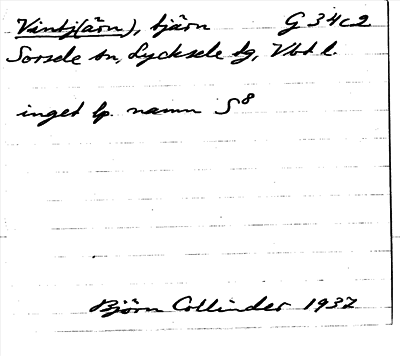 Vintj(ärn), tjärn G 34c2
Sorsele sn, Lycksele lg, Vbd l.
inget lp. namn S8
Björn Collinder 1937